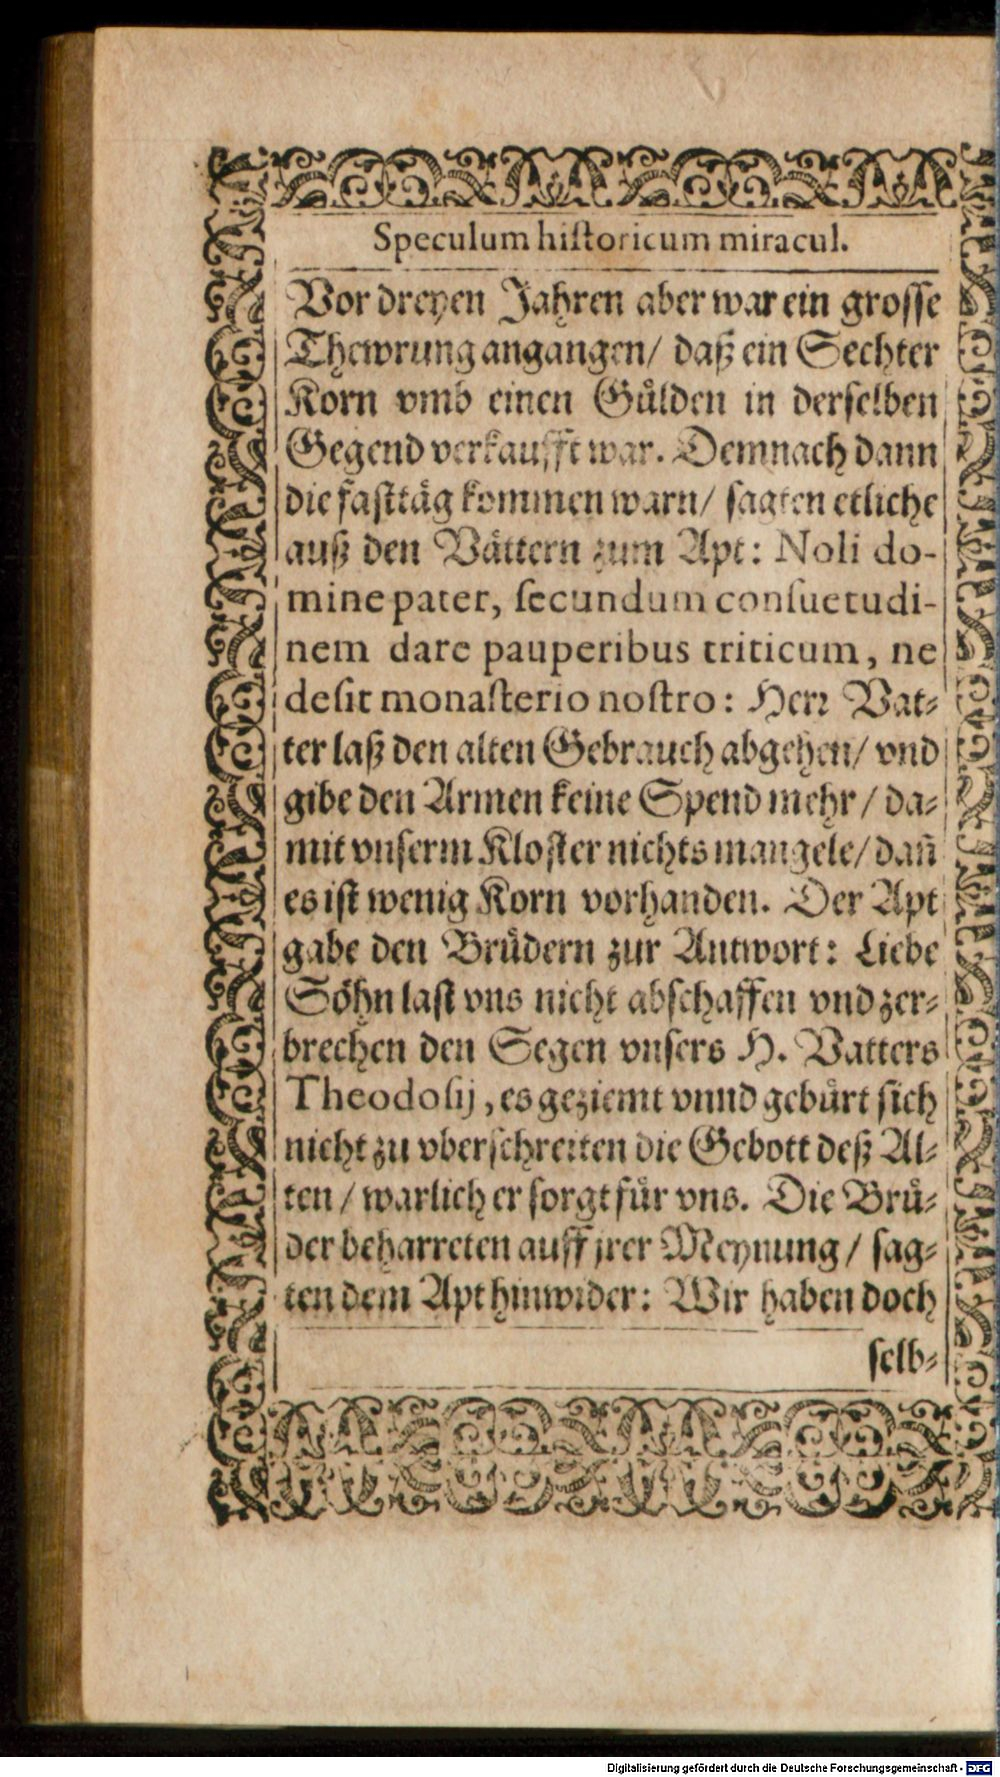 Speculum historicum miracul.
Vor dreyen Jahren aber war ein grosse
Thewrung angangen/ daß ein Sechter
Korn vmb einen Gülden in derselben
Gegend verkaufft war. Demnach dann
die fasttäg kommen warn/ sagten etliche
auß den Vättern zum Apt: Noli do-
mine pater, secundum consuetudi-
nem dare pauperibus triticum, ne
desit monasterio nostro: Herr Vat-
ter laß den alten Gebrauch abgehen/ vnd
gibe den Armen keine Spend mehr/ da-
mit vnserm Kloster nichts mangele/ dañ
es ist wenig Korn vorhanden. Der Apt
gabe den Brüdern zur Antwort: Liebe
Söhn last vns nicht abschaffen vnd zer-
brechen den Segen vnsers H. Vatters
Theodosij, es geziemt vnnd gebürt sich
nicht zu vberschreiten die Gebott deß Al-
ten/ warlich er sorgt für vns. Die Brü-
der beharreten auff jrer Meynung/ sag-
ten dem Apt hinwider: Wir haben doch
selb-
Digitalisierung gefördert durch die Deutsche Forschungsgemeinschaft - DFG